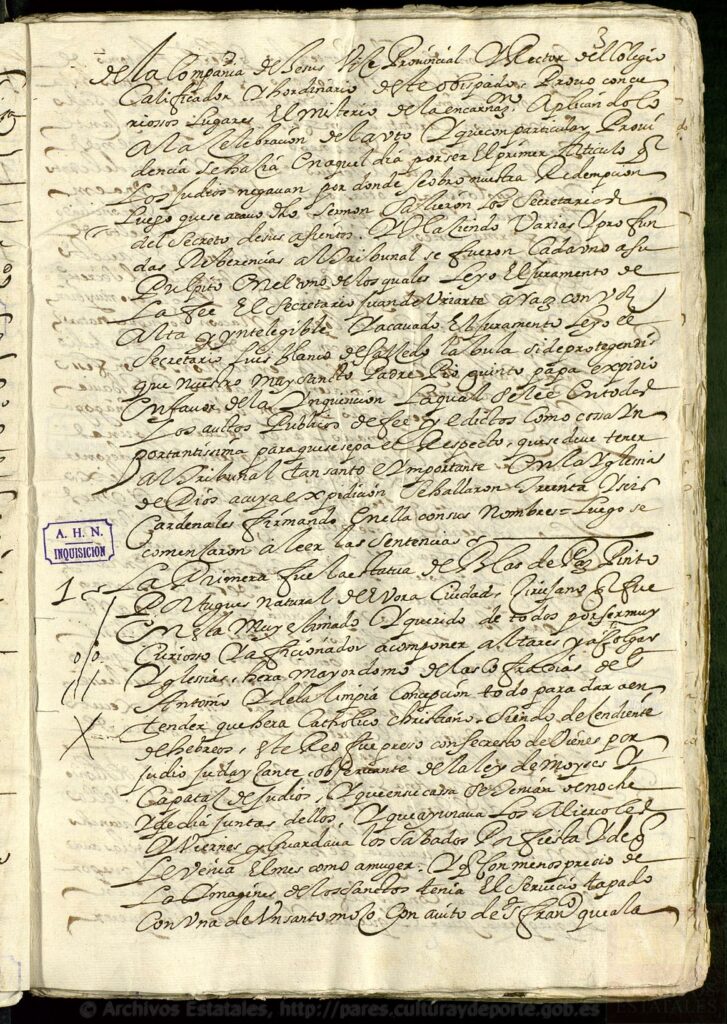 3
de la Compañia de Jesus Vice Provincial y Rector del Colegio
Calificador y hordinario deste obispado. Provo con cu
riossos Lugares El misterio de la encarnaᵒⁿ Aplicandolo
a la Celebracion del auto y que con particular Provi
dencia se hacia En aquel dia por ser El primer Articulo q̃
Los judios negavan por donde se obro nuestra Redempcion
Luego que se acavo dho Sermon Salieron los Secretarios
del Secreto de sus asientos. y Haciendo Varias y profun
das Reberencias al Tribunal se fueron Cada uno a su
Pulpito En el uno de los quales Leyo El juramento de
La fee El Secretario Juan de Uriarte con voz
Alta y yntelegible y acavado El juramento Leyo el
Secretario Luis Blanco de Salcedo la bula si de protegendis
que nuestro muy Sancto Padre Pio quinto papa expidio
En favor de la Ynquisicion La qual se lee En todos
Los auttos Publicos de fee y edictos como cossa Yn
portantissima para que se sepa el Respecto, que se deve tener
al Tribunal tan santo e ymportante En la Yglesia
de Dios a cuya expidicion Se hallaron treenta y seis
Cardenales firmando En ella con sus Nombres = Luego se
comensaron a leer las Sentencias
A. H. N.
INQUISICIÓN
1 La Primera fue la estatua de Blas de Paz Pinto
Portugues natural de Evora Ciudad, Sirusano q̃ fue
En esta muy estimado y querido de todos por ser muy
Curiosso y aficionado a componer Altares y a colgar
Yglesias, hera mayordomo de las Cofradias de S
Antonio y de la limpia Concepcion todo para dar a en
tender que hera Catholico Christiano. Siendo descendiente
de hebreos, Este Reo fue preso con secresto de vienes por
judio judaycante observante de la ley de Moyses y
Capataz de judios, y que en su casa se venian de noche
y de dia juntas dellos, y que ayunava Los Miercoles
y Viernes y Guardava los Sabados Por fiesta y de
Le venia El mes como a muger. y q̃ Con menosprecio de
La Ymagines de los Sanctos tenia El Servicio tapado
Con Una de Un santo con avito de S Franᶜᵒ que a la
© Archivos Estatales, http://pares.culturaydeporte.gob.es